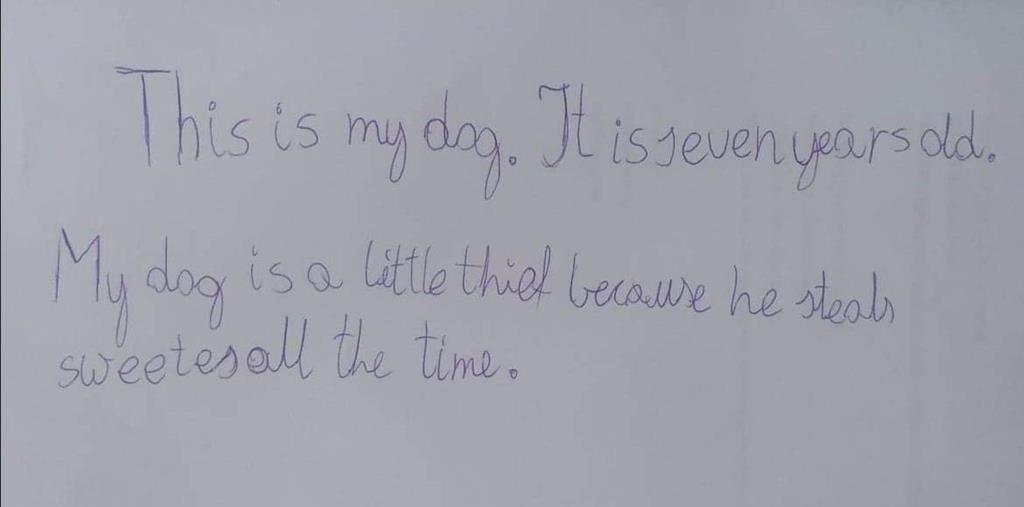 This is my dog. It is seven years old.
My dog is a little thief because he steals
sweetes all the time.